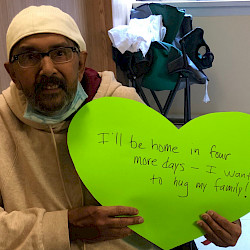 I'll be home in four
more days - I want
to hug my family!